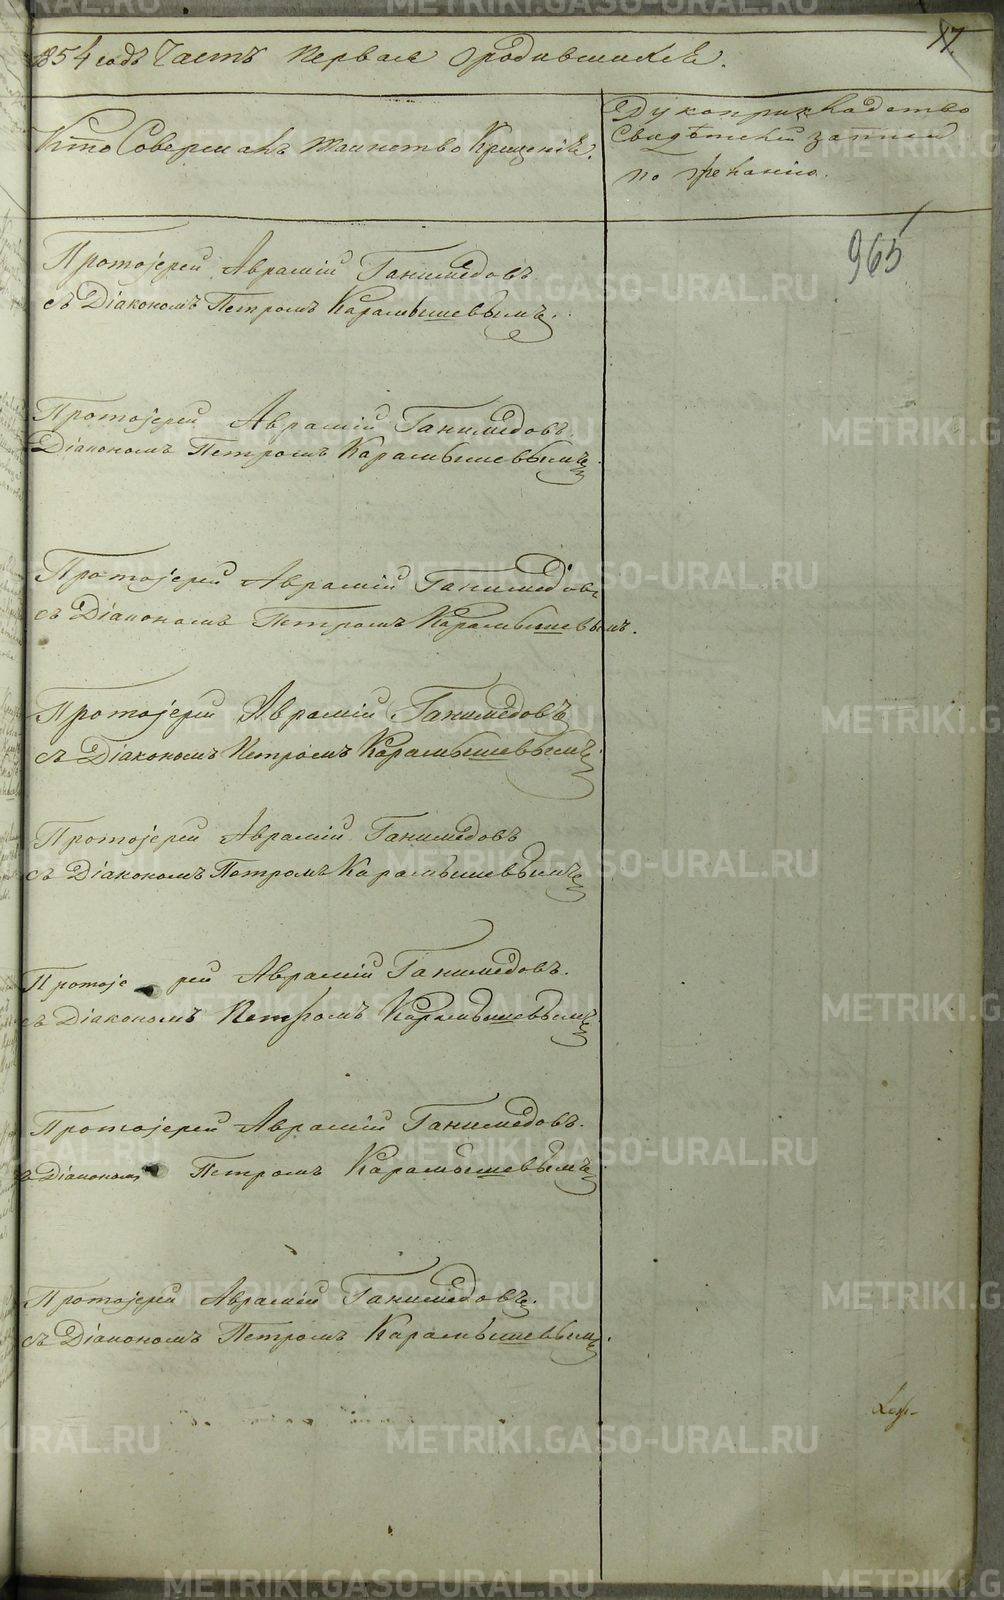 17.
1854 годъ Часть Первая ородившихся.
Кто Совершалъ таинство Крещенія.
Рукоприкладство
Свидѣтелей записи
по желанію.
965
Протоjерей Аврамій Ганимедовъ
съ Діакономъ Петромъ Карамышевымъ.
Протоjерей Аврамій Ганимедовъ
Діакономъ Петромъ Карамышевымъ.
Протоjерей Аврамій Ганимедовъ
съ Діакономъ Петромъ Карамышевымъ.
Протоjерей Аврамій Ганимедовъ
съ Діакономъ Петромъ Карамышевымъ.
Протоjерей Аврамій Ганимедовъ
съ Діакономъ Петромъ Карамышевымъ
Протоjерей Аврамій Ганимедовъ.
съ Діакономъ Петромъ Карамышевымъ
Протоjерей Аврамій Ганимедовъ.
съ Діакономъ Петромъ Карамышевымъ
Протоjерей Аврамій Ганимедовъ.
съ Діакономъ Петромъ Карамышевымъ.
METRIKI.GASO-URAL.RU